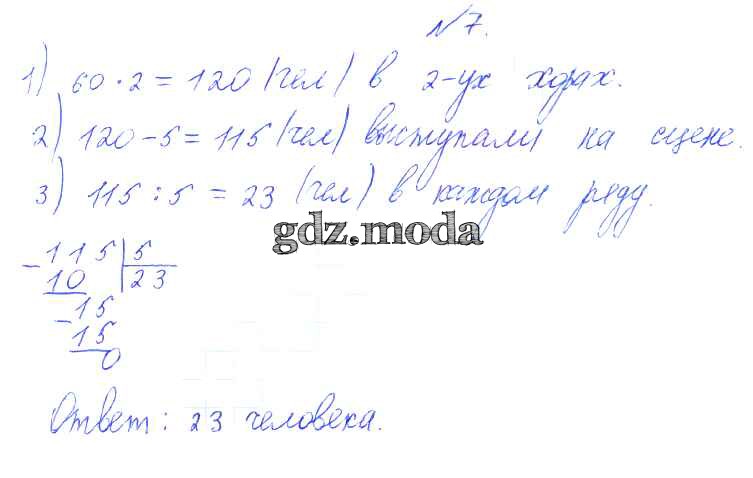 №7.
1) 60 · 2 = 120 (чел) в 2-ух хорах.
2) 120 - 5 = 115 (чел) выступали на сцене.
3) 115 : 5 = 23 (чел) в каждом ряду.
gdz.moda
- 115 | 5
10 | 23
- 15
15
0
Ответ: 23 человека.